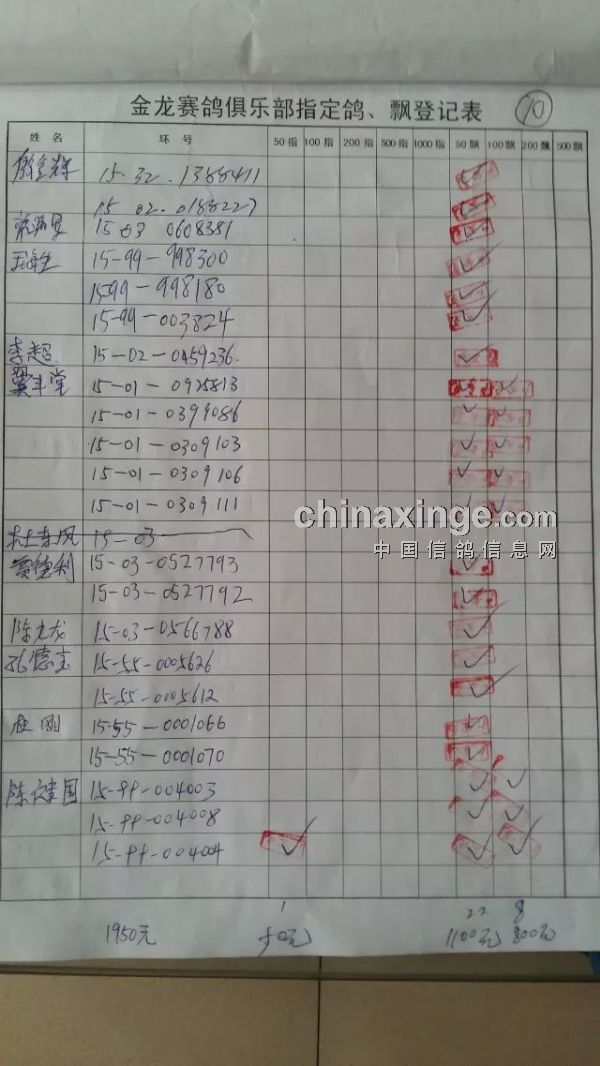 金龙赛鸽俱乐部指定鸽、飘登记表 10
姓名 环号 50指 100指 200指 500指 1000指 50飘 100飘 200飘 500飘
15-32.1388411
15 02.0188227
15 03 0608381
15-99-998300
1599-998180
15-99-003824
李超 15-02-0459236.
冀丰堂 15-01-0925813
15-01-0399086
15-01-0309103
15-01-0309106
15-01-0309111
chinaxinge.com
杜春风 15-03
中国信鸽信息网
贾德利 15-03-0527793
15-03-0527792
陈九龙 15-03-0566788
孔德玉 15-55-0005626
15-55-0005612
杜刚 15-55-0001066
15-55-0001070
陈健国 15-99-004003
15-99-004008
15-99-004004
1 22 8
1950元 50元 1100元 800元